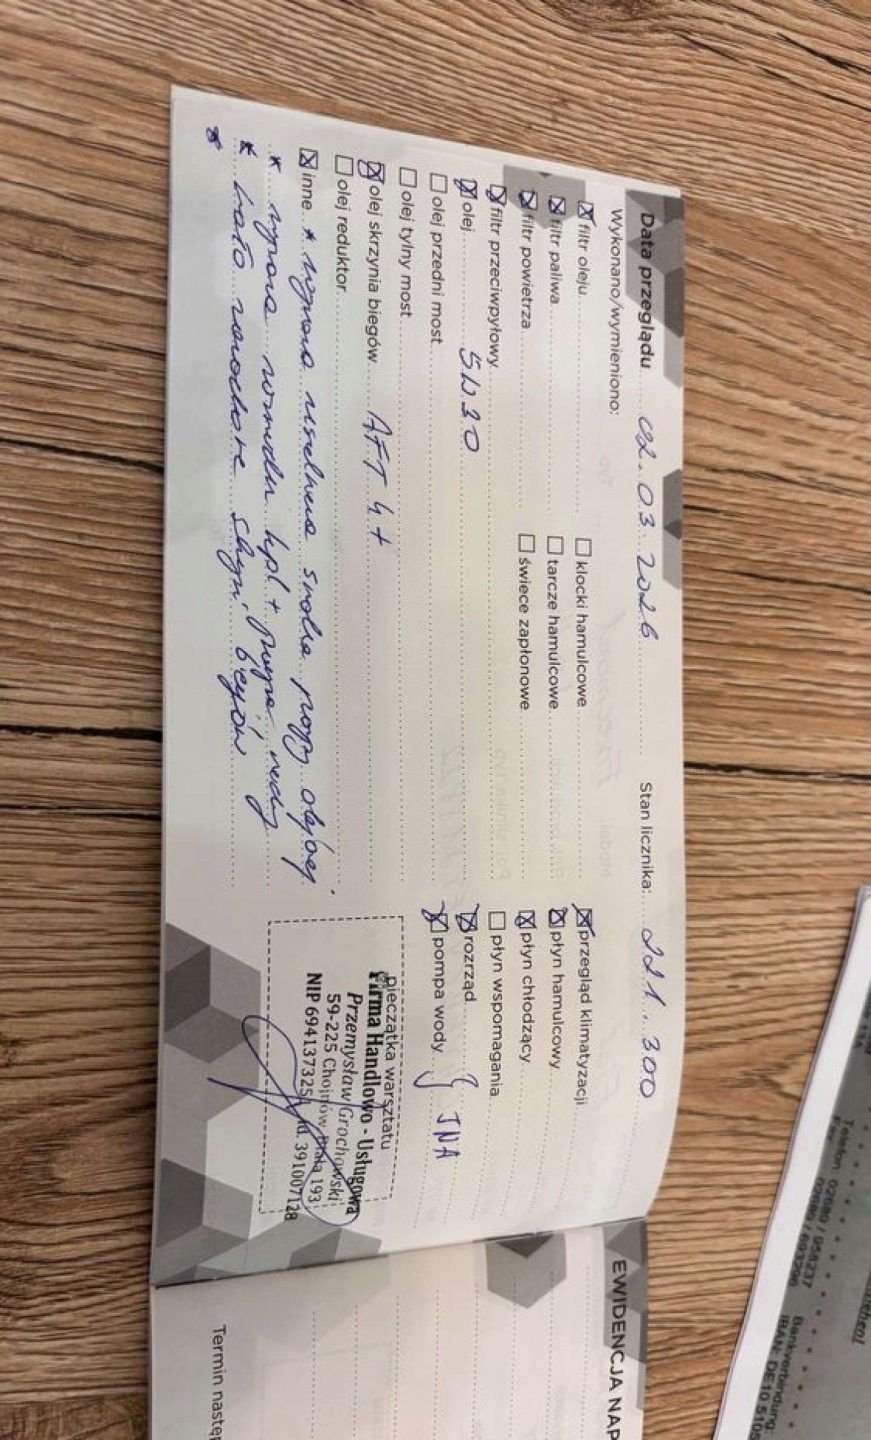 Data przeglądu 02.03 2026 Stan licznika: 221.300
Wykonano/wymieniono:
filtr oleju klocki hamulcowe przegląd klimatyzacji
filtr paliwa tarcze hamulcowe płyn hamulcowy
filtr powietrza świece zapłonowe płyn chłodzący
filtr przeciwpyłowy płyn wspomagania
olej 5W30 rozrząd
olej przedni most pompa wody } INA
olej tylny most
olej skrzynia biegów AFT 4+
olej reduktor
inne * pompy olejowej
* kpl +
* skrzyni biegów
*
pieczątka warsztatu
Firma Handlowo - Usługowa
Przemysław Grochowski
59-225 Chojnów, Biała 193
NIP 694137325 391007128
EWIDENCJA NAP
Termin następ
Telefon: 02680 / 958237
Bankverbindung:
IBAN: DE10 5105